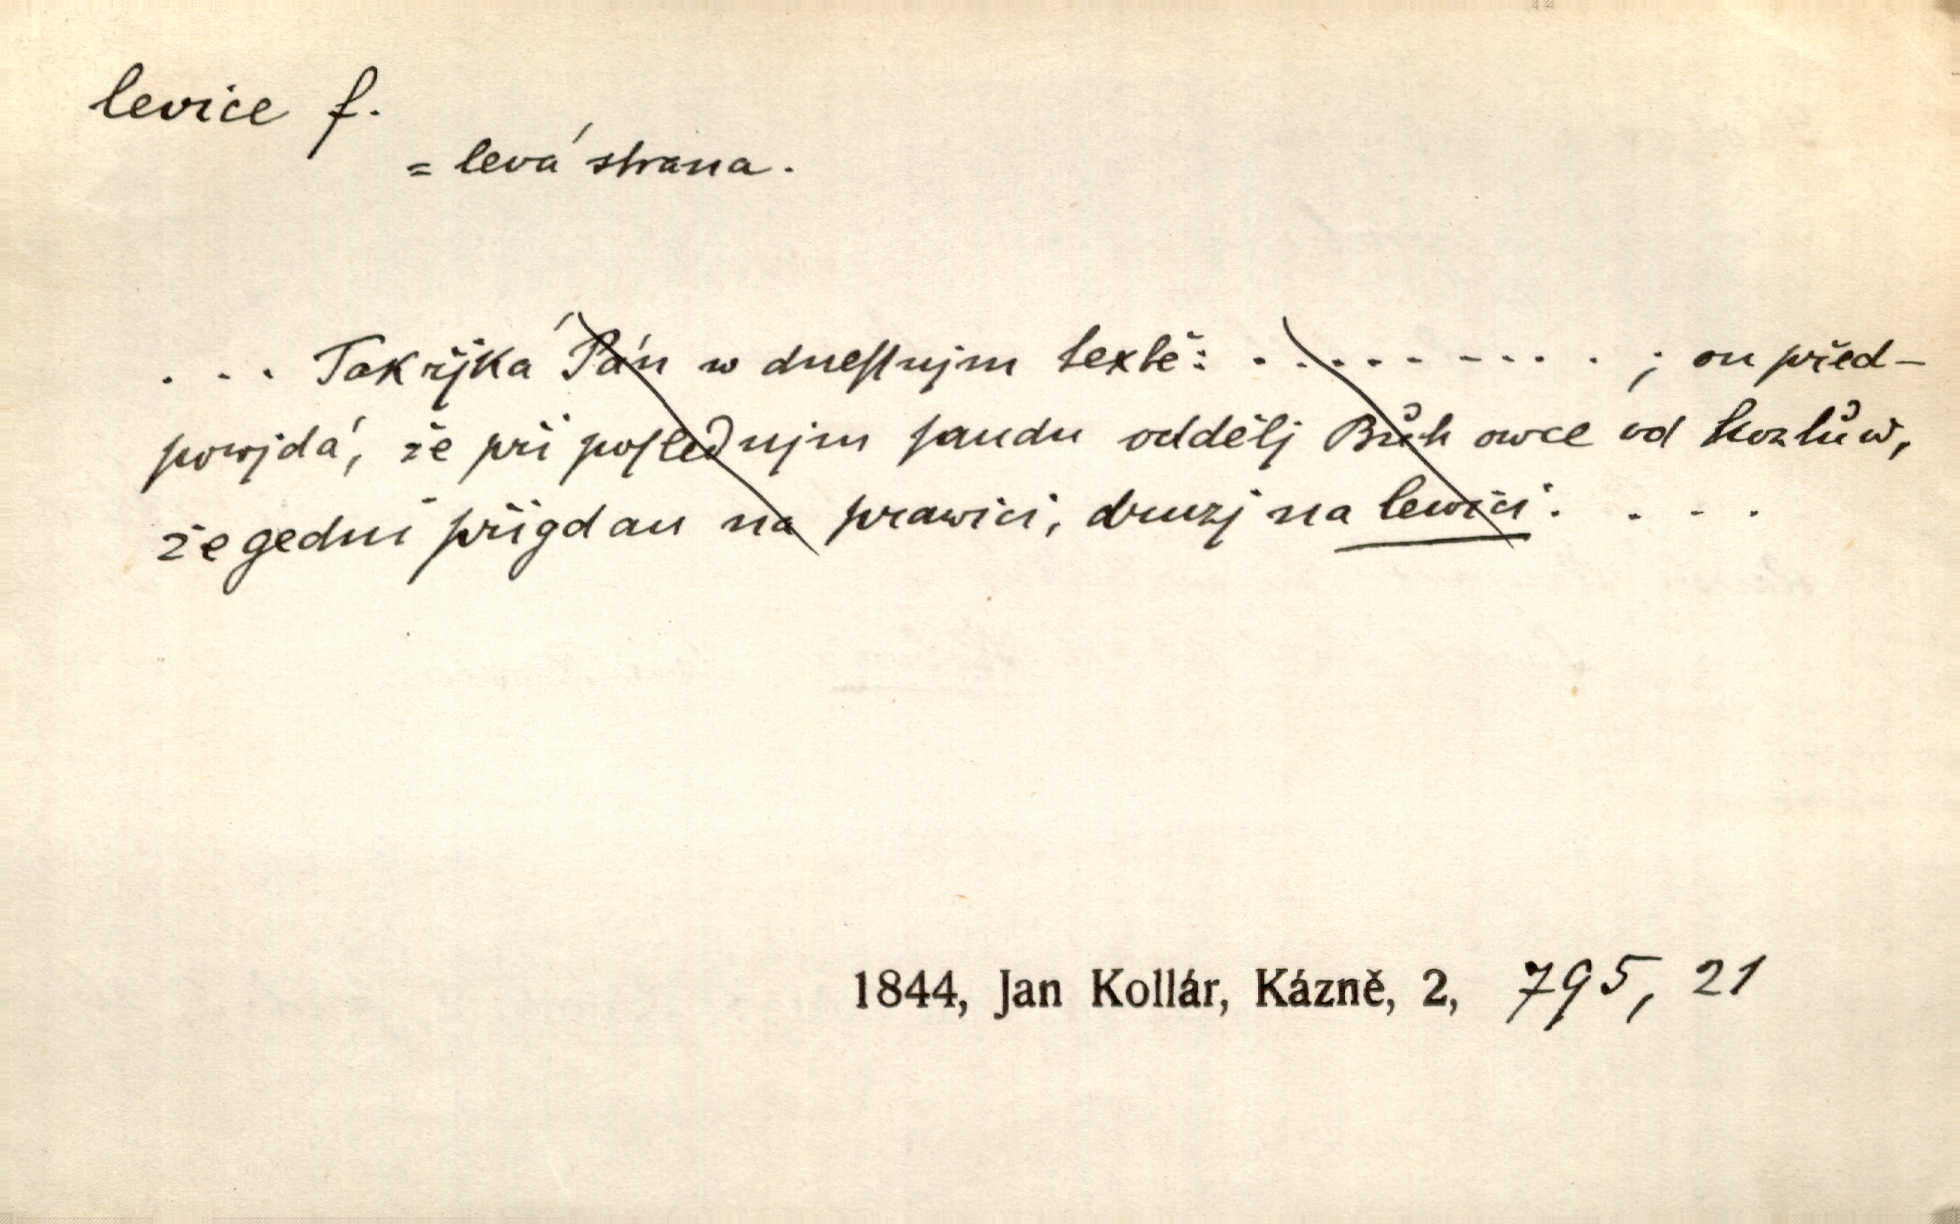 levice f.
= levá strana.
. . . Tak řjká Pán w dneſſnjm textě: . . . . . . . . . . ; on před-
powjdá, že při poſlednjm ſaudu oddělj Bůh owce od kozlůw,
že gedni přigdau na prawici, druzj na lewici. . . .
1844, Jan Kollár, Kázně, 2, 795, 21